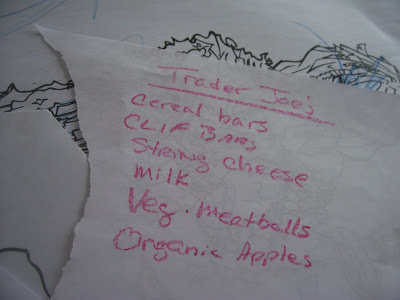 Trader Joe's
cereal bars
CLIF BARS
String cheese
milk
Veg. meatballs
Organic Apples